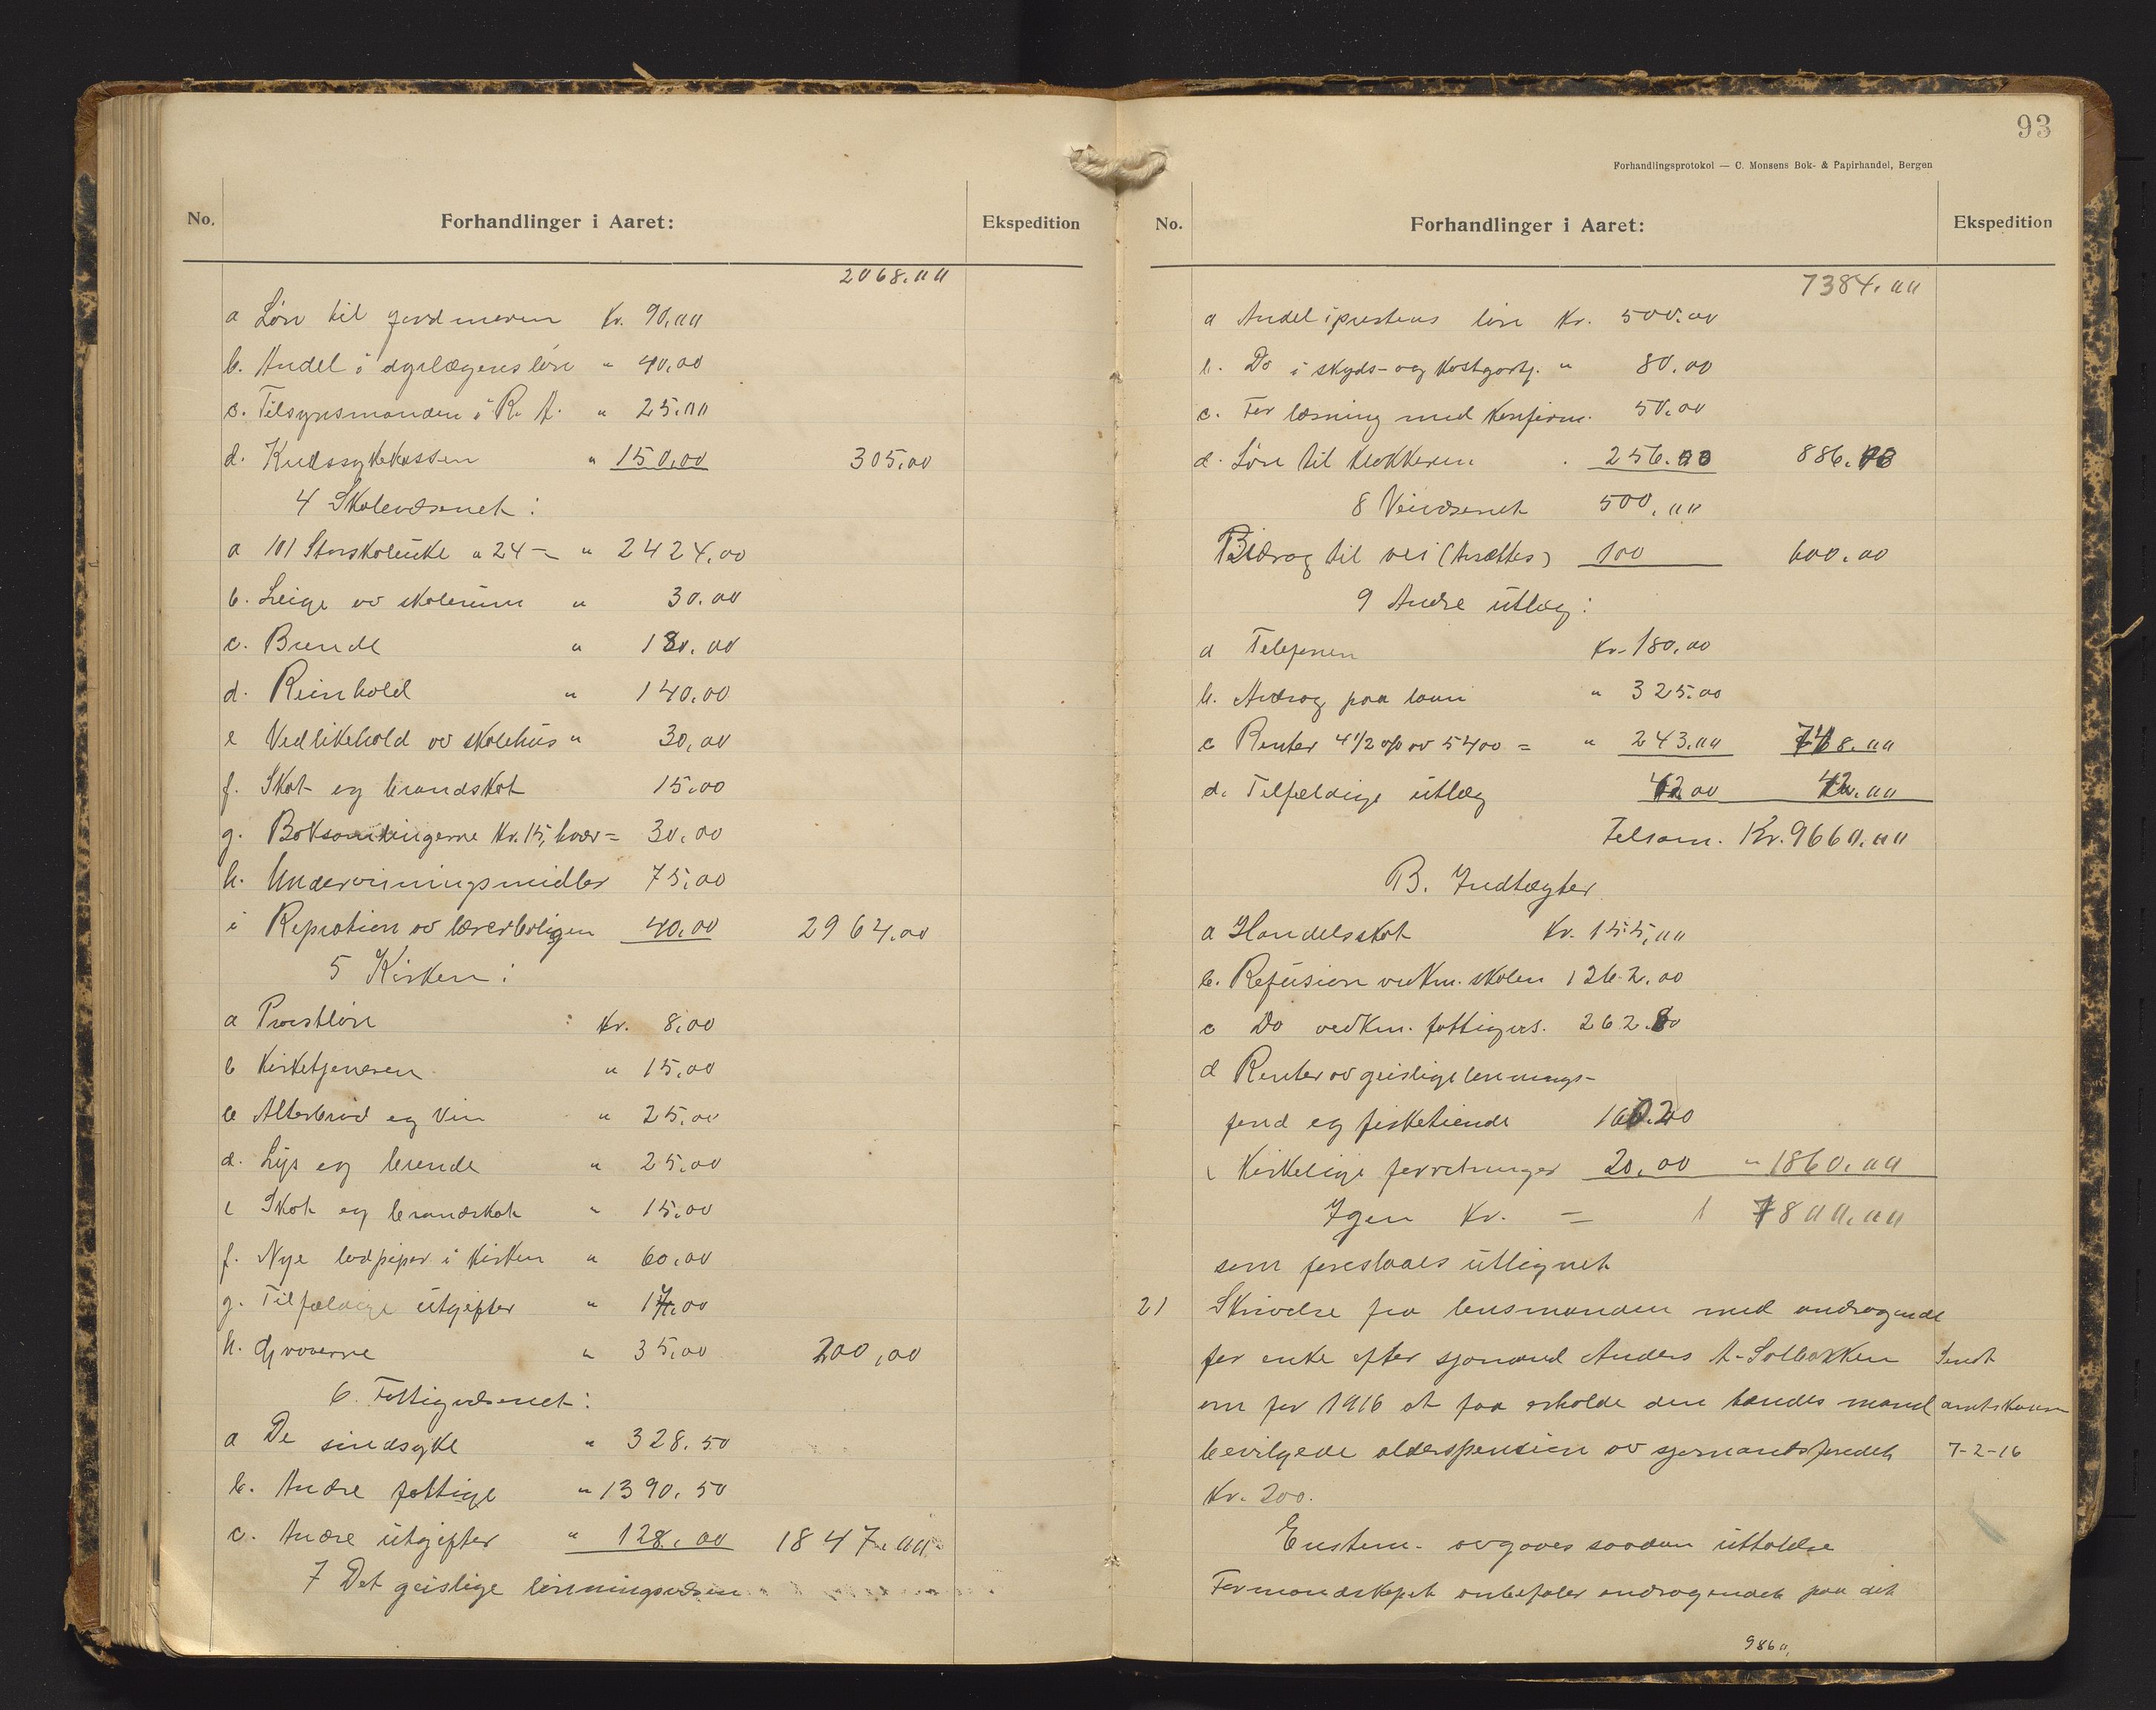 No. Forhandlinger i Aaret: Ekspedition
2068.00
a Løn til jordmoren Kr. 90,00
b. Andel i dyrlægens løn " 40,00
c. Tilsynsmanden i R. A. " 25.00
d. Kredssykekassen " 150,00 305,00
4 Skolevæsenet:
a 101 Storskoleuke a 24 – " 2424,00
b. Leige av skolerum " 30.00
c. Brende " 180.00
d. Reinhold " 140.00
e Vedlikehold av skolehus " 30,00
f. Skat og brandskat 15.00
g. Boksamlingerne Kr. 15, hver = 30,00
h. Undervisningsmidler 75,00
i Repration av lærerboligen 40.00 2964,00
5 Kirken:
a Provstløn : Kr. 8,00
b Kirketjeneren " 15,00
c Alterbrød og Vin " 25,00
d. Lys og brende " 25,00
e Skat og brandskat " 15,00
f. Nye lodpiper i Kirken " 60,00
g. Tilfældige utgifter " 17,00
h. Graverne " 35,00 200,00
6. Fattigvæsenet:
a De sindsyke " 328.50
b. Andre fattige " 1390.50
c. Andre utgifter " 128,00 1847.00
7 Det geislige lønningsvæsen
93
Forhandlingsprotokol — C. Monsens Bok- & Papirhandel, Bergen
No. Forhandlinger i Aaret: Ekspedition
7384.00
a Andel i prestens løn Kr. 500.00
b. Do i skyds- og kostgodtg. " 80.00
c. For læsning med konfirm. 50.00
d. Løn til klokkeren 256.00 886.00
8 Veivæsenet 500,00
Bidrag til vei 100 600.00
9 Andre utlæg:
a Telefonen Kr. 180.00
b. Avdrag paa laan " 325.00
c Renter 4 1/2 o/o av 5400 = " 243.00 748.00
d. Tilfældige utlæg 42.00 42.00
Tilsam. Kr. 9660.00
B. Indtægter
a Handelsskat Kr. 155,00
b. Refusion vedkm. skolen 1262.00
c Do vedkm. fattigvæs. 262.80
d Renter av geislige lønnings-
fond og fisketiende 160.20
e Kirkelige forretninger 20.00 " 1860.00
Igen Kr. = 7800.00
som foreslaaes utlignet
21 Skrivelse fra lensmanden med andragende
for enke efter sjømand Anders A. Solbakken Sendt
om for 1916 at faa erholde den hendes mand amtskom
bevilgede alderspension av sjømandsfondet 7-2-16
Kr. 200.
Enstem. avgaves saadan uttalelse
Formandskapet anbefaler andragendet paa det
9860,